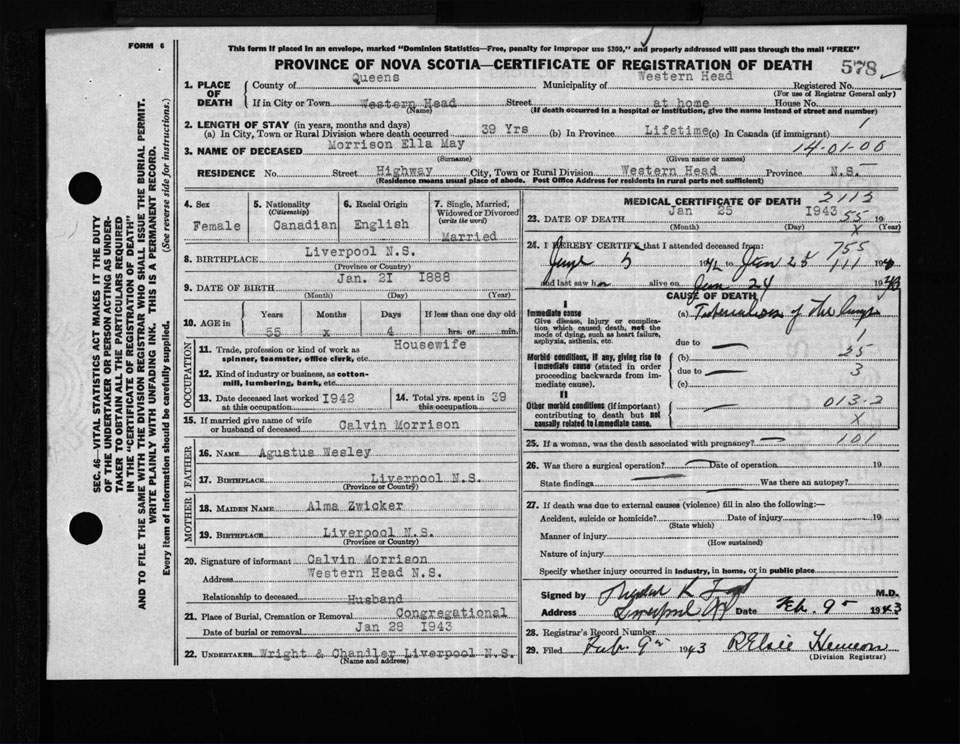 FORM 6
This form if placed in an envelope, marked "Dominion Statistics—Free, penalty for improper use $300," and properly addressed will pass through the mail "FREE"
PROVINCE OF NOVA SCOTIA—CERTIFICATE OF REGISTRATION OF DEATH
578
SEC. 46—VITAL STATISTICS ACT MAKES IT THE DUTY
OF THE UNDERTAKER OR PERSON ACTING AS UNDER-
TAKER TO OBTAIN ALL THE PARTICULARS REQUIRED
IN THE "CERTIFICATE OF REGISTRATION OF DEATH"
AND TO FILE THE SAME WITH THE DIVISION REGISTRAR WHO SHALL ISSUE THE BURIAL PERMIT.
WRITE PLAINLY WITH UNFADING INK. THIS IS A PERMANENT RECORD.
Every item of information should be carefully supplied. (See reverse side for instructions.)
1. PLACE OF DEATH
County of Queens Municipality of Western Head Registered No.
(For use of Registrar General only)
If in City or Town Western Head Street at home House No.
(Name) (If death occurred in a hospital or institution, give the name instead of street and number)
2. LENGTH OF STAY (in years, months and days)
(a) In City, Town or Rural Division where death occurred 39 Yrs (b) In Province Lifetime (c) In Canada (if immigrant) 1
3. NAME OF DECEASED Morrison Ella May 14-01-00
(Surname) (Given name or names)
RESIDENCE No. Street Highway City, Town or Rural Division Western Head Province N.S.
(Residence means usual place of abode. Post Office Address for residents in rural parts not sufficient)
4. Sex
Female
5. Nationality
(Citizenship)
Canadian
6. Racial Origin
English
7. Single, Married,
Widowed or Divorced
(write the word)
Married
8. BIRTHPLACE Liverpool N.S.
(Province or Country)
9. DATE OF BIRTH Jan. 21 1888
(Month) (Day) (Year)
10. AGE in
Years Months Days If less than one day old
55 x 4 hrs. or min.
OCCUPATION
11. Trade, profession or kind of work as
spinner, teamster, office clerk, etc. Housewife
12. Kind of industry or business, as cotton-
mill, lumbering, bank, etc.
13. Date deceased last worked 1942
at this occupation
14. Total yrs. spent in 39
this occupation
15. If married give name of wife
or husband of deceased Calvin Morrison
FATHER
16. NAME Agustus Wesley
17. BIRTHPLACE Liverpool N.S.
(Province or Country)
MOTHER
18. MAIDEN NAME Alma Zwicker
19. BIRTHPLACE Liverpool N.S.
(Province or Country)
20. Signature of informant Calvin Morrison
Address Western Head N.S.
Relationship to deceased Husband
21. Place of Burial, Cremation or Removal Congregational
Date of burial or removal Jan 28 1943
22. UNDERTAKER Wright & Chandler Liverpool N.S.
(Name and address)
MEDICAL CERTIFICATE OF DEATH 2113
23. DATE OF DEATH Jan 25 1943 55 19
(Month) (Day) (Year)
x
24. I HEREBY CERTIFY that I attended deceased from: 755
June 5 1942 to Jan 25 111 19
and last saw h alive on Jan 24 1943
CAUSE OF DEATH
I
Immediate cause
Give disease, injury or complica-
tion which caused death, not the
mode of dying, such as heart failure,
asphyxia, asthenia, etc.
(a) Tuberculosis of the lungs
due to 1
Morbid conditions, if any, giving rise to
immediate cause (stated in order
proceeding backwards from im-
mediate cause).
(b) 25
due to 3
(c)
II
Other morbid conditions (if important)
contributing to death but not
causally related to immediate cause.
013-2
x
25. If a woman, was the death associated with pregnancy? 101
26. Was there a surgical operation? Date of operation 19
State findings Was there an autopsy?
27. If death was due to external causes (violence) fill in also the following:—
Accident, suicide or homicide? Date of injury 19
(State which)
Manner of injury
(How sustained)
Nature of injury
Specify whether injury occurred in industry, in home, or in public place
Signed by M.D.
Address Liverpool NS Date Feb. 9 1943
28. Registrar's Record Number
29. Filed Feb. 9 1943 R Elsie
(Division Registrar)